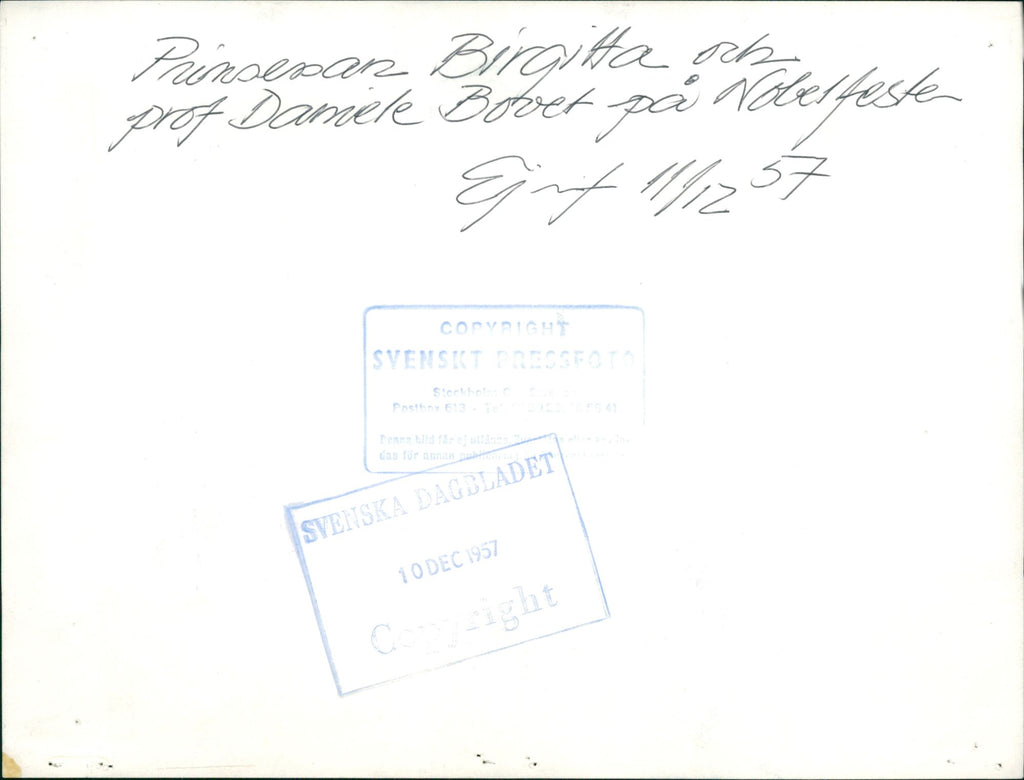 Prinsessan Birgitta och
prof Daniele Bovet på Nobelfesten
Ej inf 11/12 57
COPYRIGHT
SVENSKT PRESSFOTO
Stockholm
Postbox 613 - Tel.
Denna bild får ej utlånas,
das för annan
SVENSKA DAGBLADET
10 DEC 1957
Copyright